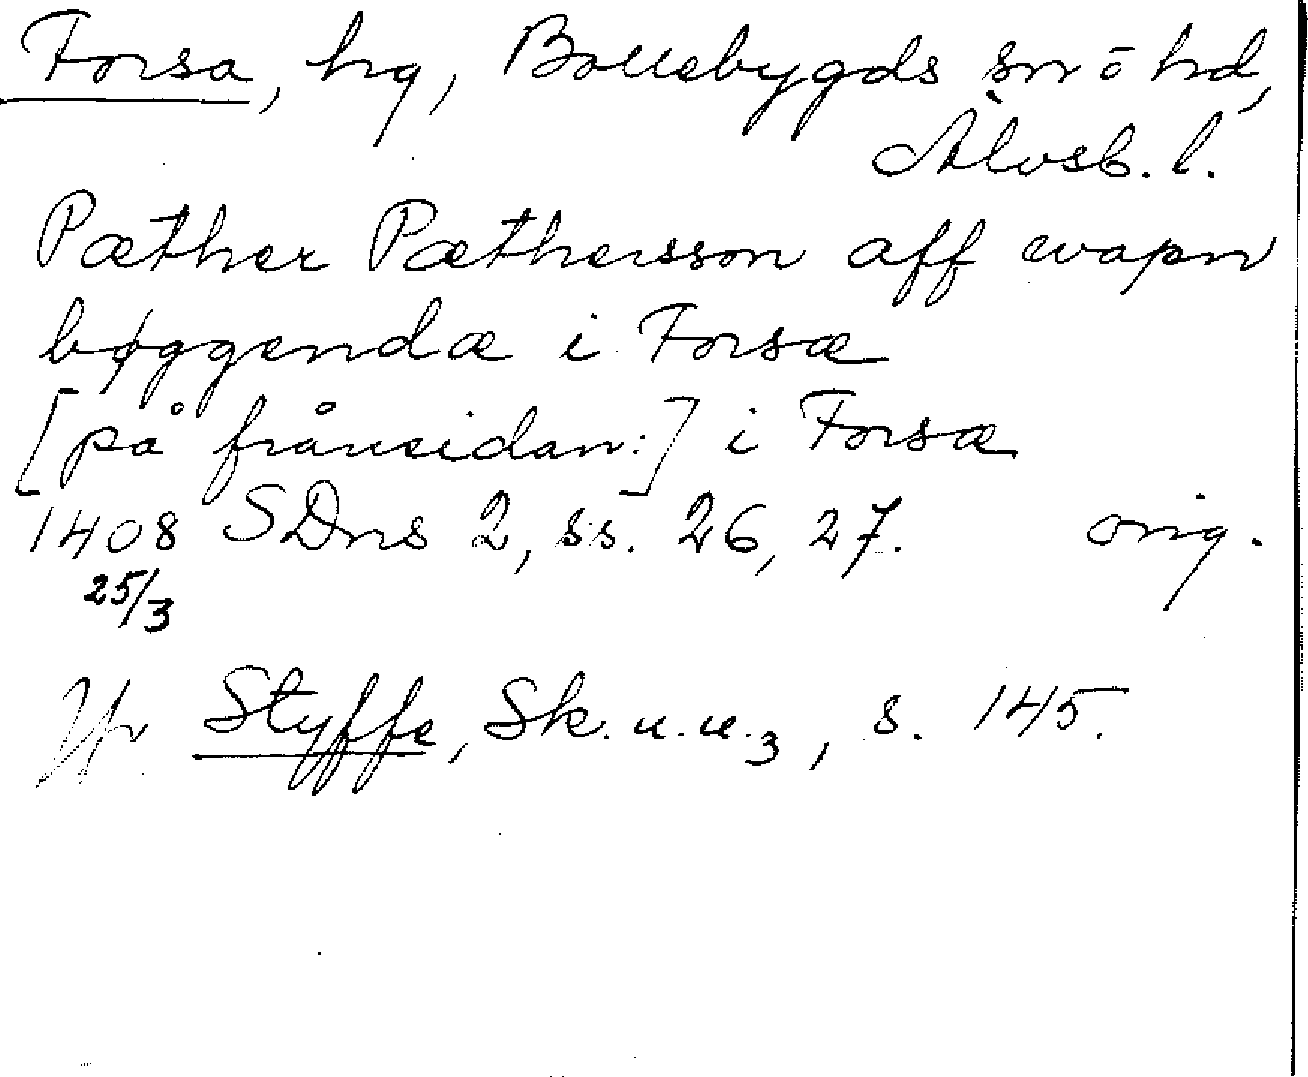 Forsa, hg, Bollebygds sn o hd,
Älvsb. l.
Pæther Pæthersson aff wapn
bøggendæ i Forsæ
[på frånsidan:] i Forsæ
1408 SDns 2, ss. 26, 27. orig.
25/3
Jfr Styffe, Sk. u. u. 3, s. 145.